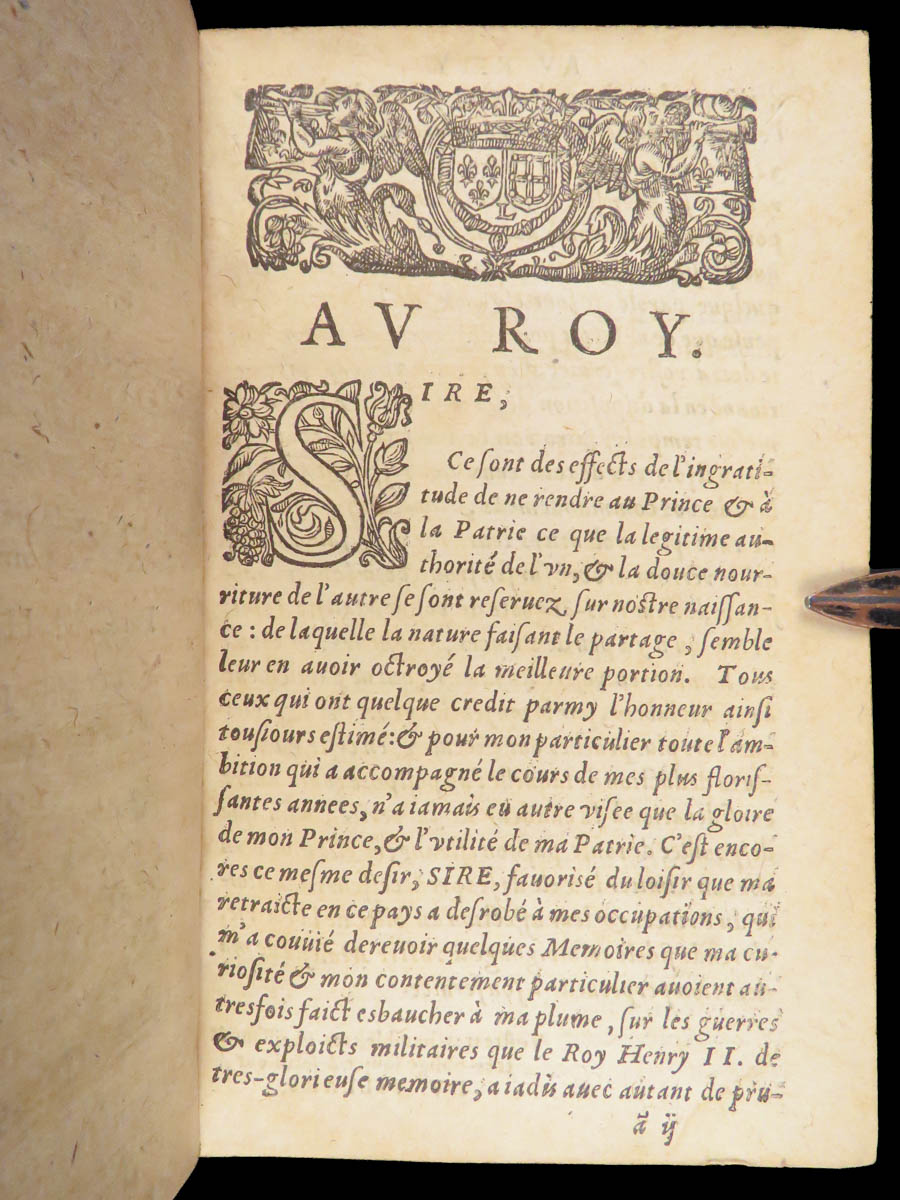 L
AV ROY.
SIRE,
Ce ſont des effects de l'ingrati-
tude de ne rendre au Prince & à
la Patrie ce que la legitime au-
thorité de l'vn, & la douce nour-
riture de l'autre ſe ſont reſeruez ſur noſtre naiſſan-
ce : de laquelle la nature faiſant le partage, ſemble
leur en auoir octroyé la meilleure portion. Tous
ceux qui ont quelque credit parmy l'honneur ainſi
touſiours eſtimé: & pour mon particulier toute l'am-
bition qui a accompagné le cours de mes plus floriſ-
ſantes annees, n'a iamais eu autre viſee que la gloire
de mon Prince, & l'vtilité de ma Patrie. C'eſt enco-
res ce meſme deſir, SIRE, fauoriſé du loiſir que ma
retraicte en ce pays a deſrobé à mes occupations, qui
m'a couuié de reuoir quelques Memoires que ma cu-
rioſité & mon contentement particulier auoient au-
tresfois faict esbaucher à ma plume, ſur les guerres
& exploicts militaires que le Roy Henry II. de
tres-glorieuſe memoire, a iadis auec autant de pru-
ã ij